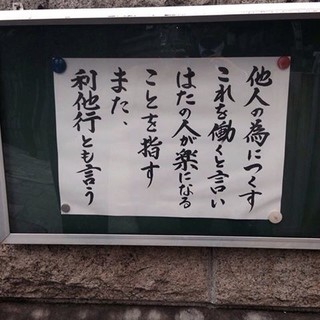 他人の為につくす
これを働くと言い
はたの人が楽になる
ことを指す
また、
利他行とも言う